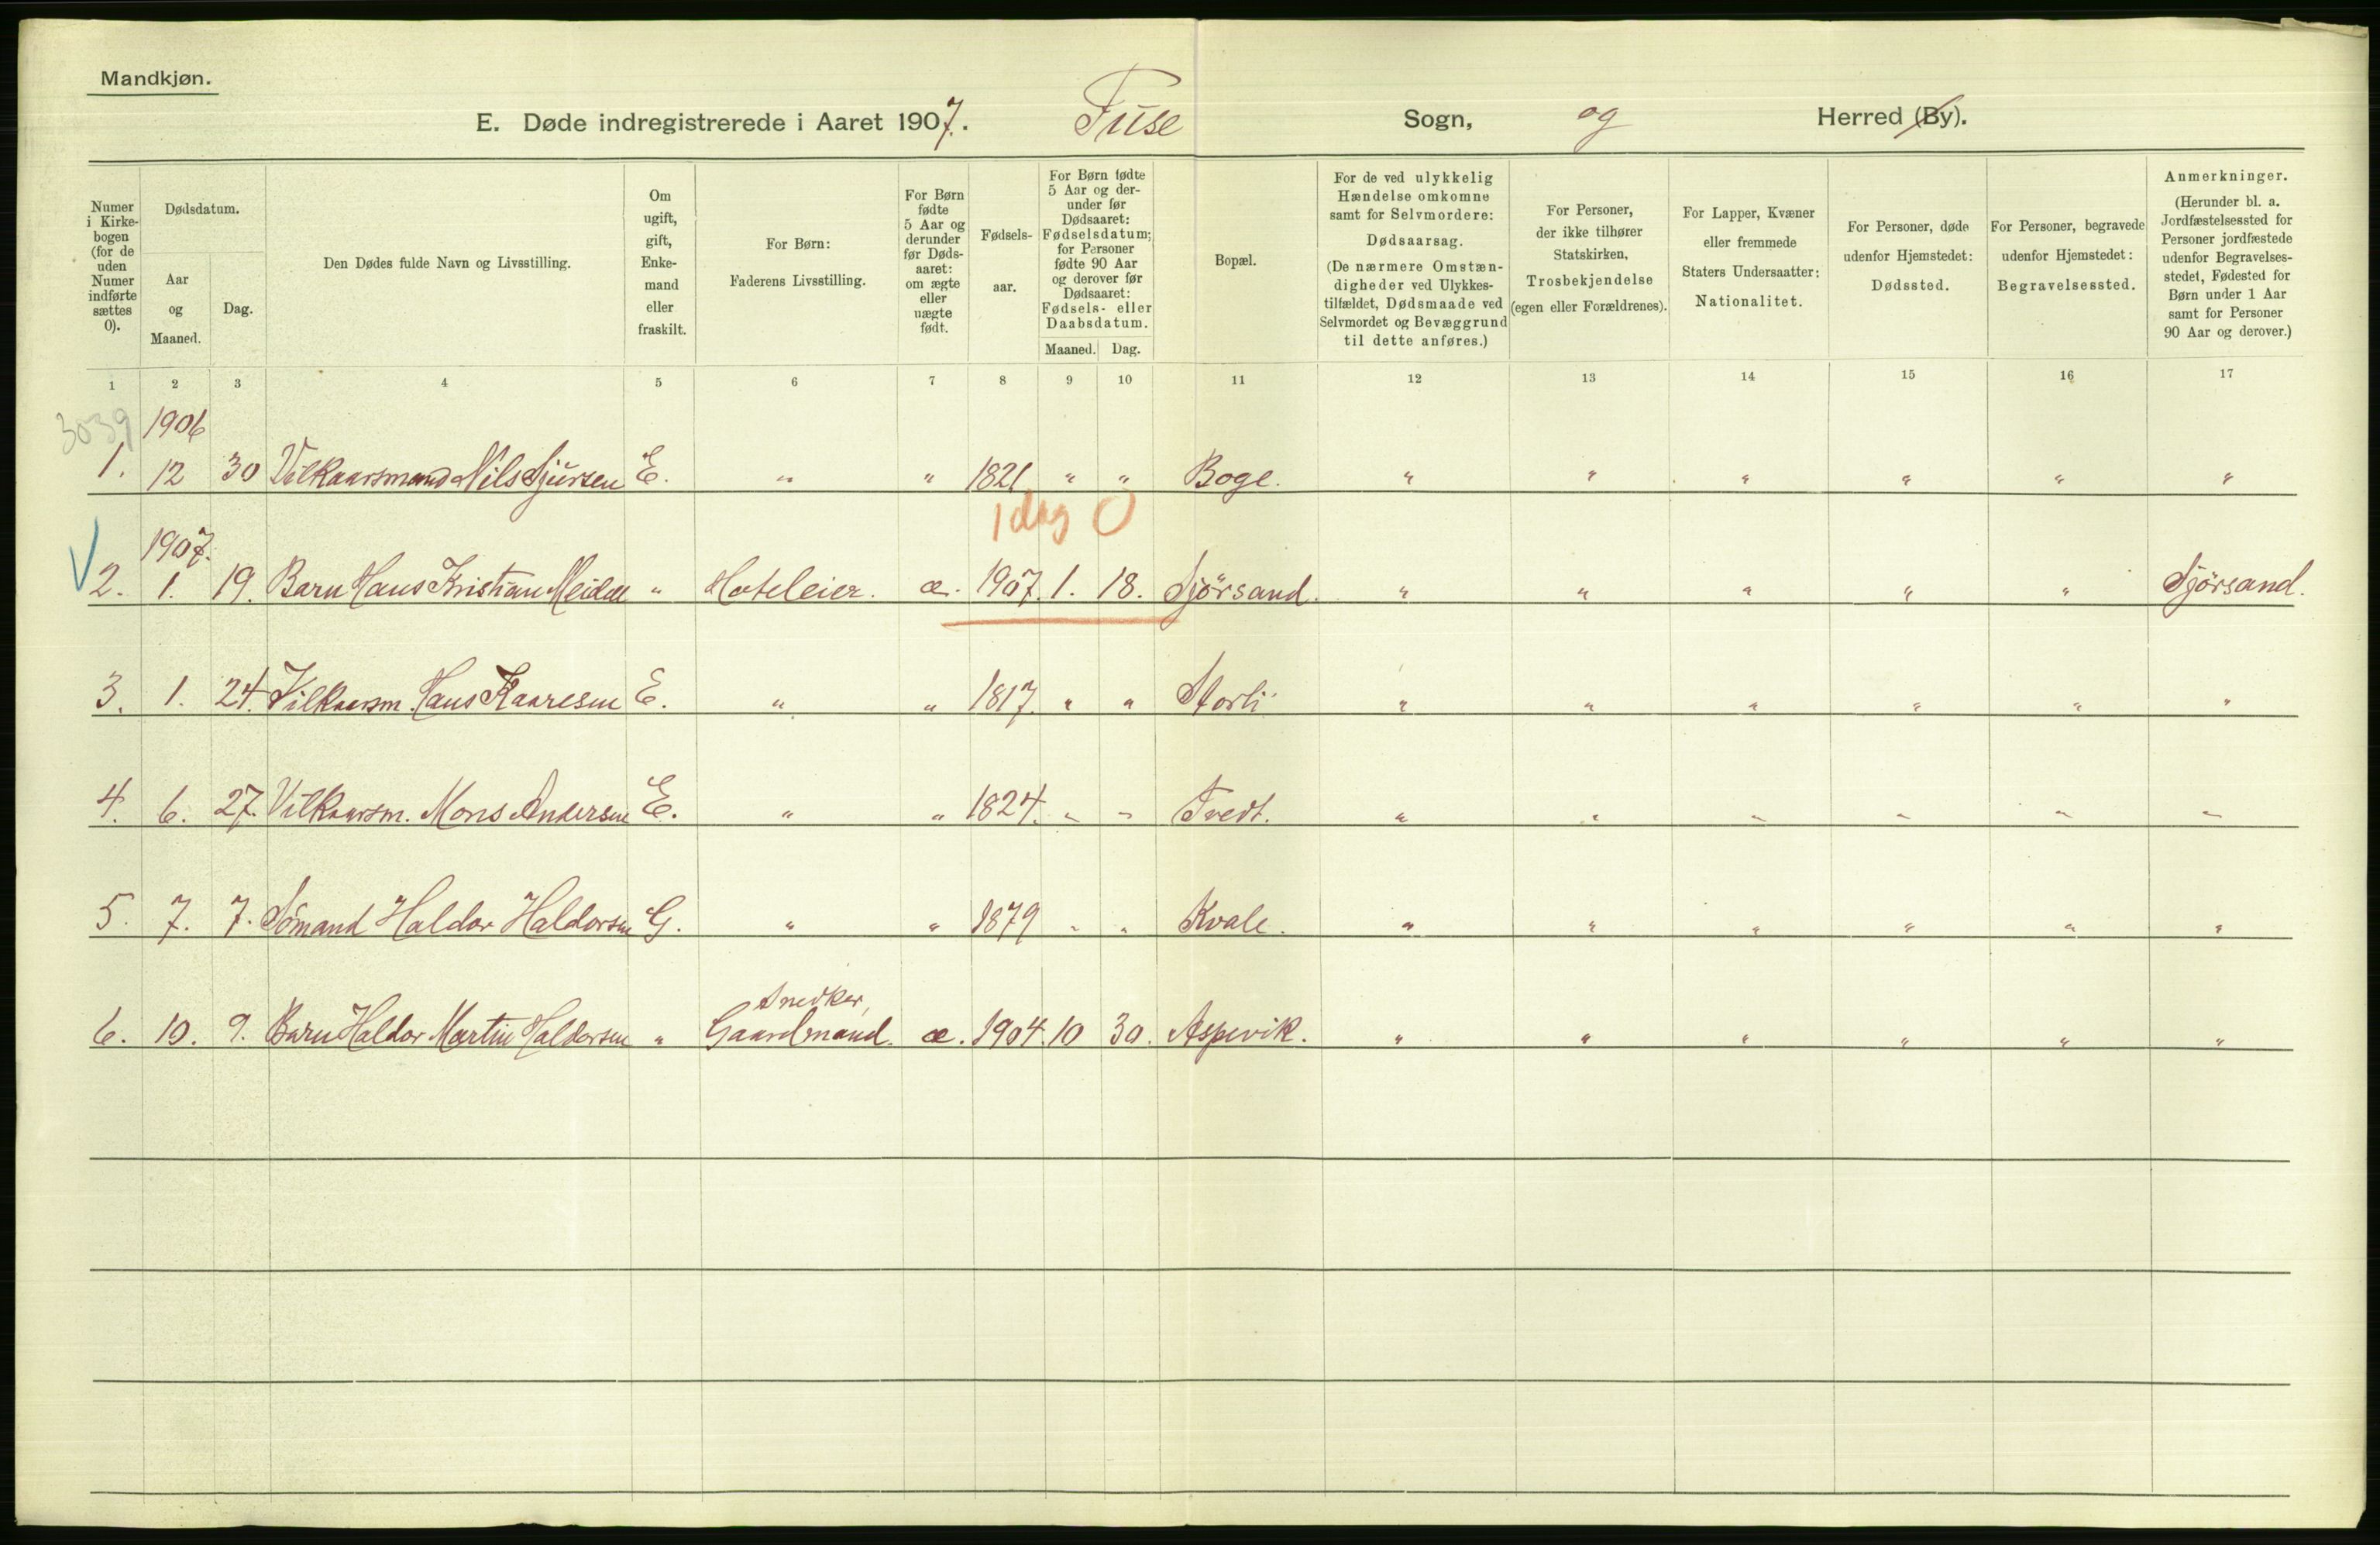 Mandkjøn.
E. Døde indregistrerede i Aaret 1907. Fuse Sogn, og Herred (By).
Numer i Kirkebogen (for de uden Numer indførte sættes 0).
Dødsdatum.
Aar og Maaned.
Dag.
Den Dødes fulde Navn og Livsstilling.
Om ugift, gift, Enkemand eller fraskilt.
For Børn: Faderens Livsstilling.
For Børn fødte 5 Aar og derunder før Dødsaaret: om ægte eller uægte født.
Fødselsaar.
For Børn fødte 5 Aar og derunder før Dødsaaret: Fødselsdatum; for Personer fødte 90 Aar og derover før Dødsaaret: Fødsels- eller Daabsdatum.
Maaned. Dag.
Bopæl.
For de ved ulykkelig Hændelse omkomne samt for Selvmordere: Dødsaarsag. (De nærmere Omstændigheder ved Ulykkestilfældet, Dødsmaade ved Selvmordet og Bevæggrund til dette anføres.)
For Personer, der ikke tilhører Statskirken, Trosbekjendelse (egen eller Forældrenes).
For Lapper, Kvæner eller fremmede Staters Undersaatter: Nationalitet.
For Personer, døde udenfor Hjemstedet: Dødssted.
For Personer, begravede udenfor Hjemstedet: Begravelsessted.
Anmerkninger. (Herunder bl. a. Jordfæstelsessted for Personer jordfæstede udenfor Begravelsesstedet, Fødested for Børn under 1 Aar samt for Personer 90 Aar og derover.)
1 2 3 4 5 6 7 8 9 10 11 12 13 14 15 16 17
3039 1906
1. 12 30 Vilkaarsmand Nils Sjursen E. " " 1821 " " Boge. " " " " " "
1 dag 0
1907.
2. 1. 19. Barn Hans Kristian Meidell " Hoteleier. æ. 1907. 1. 18. Sjörsand. " " " " " Sjörsand.
3. 1. 24. Vilkaarsm. Hans Kaaresen E. " " 1817. " " Storli " " " " " "
4. 6. 27. Vilkaarsm. Mons Andersen E. " " 1824. " " Tvedt. " " " " " "
5. 7. 7. Sömand Haldor Haldorsen G. " " 1879 " " Kvale. " " " " " "
Snedker,
6. 10. 9. Barn Haldor Martin Haldorsen " Gaardmand. æ. 1904. 10 30. Aspevik. " " " " " "